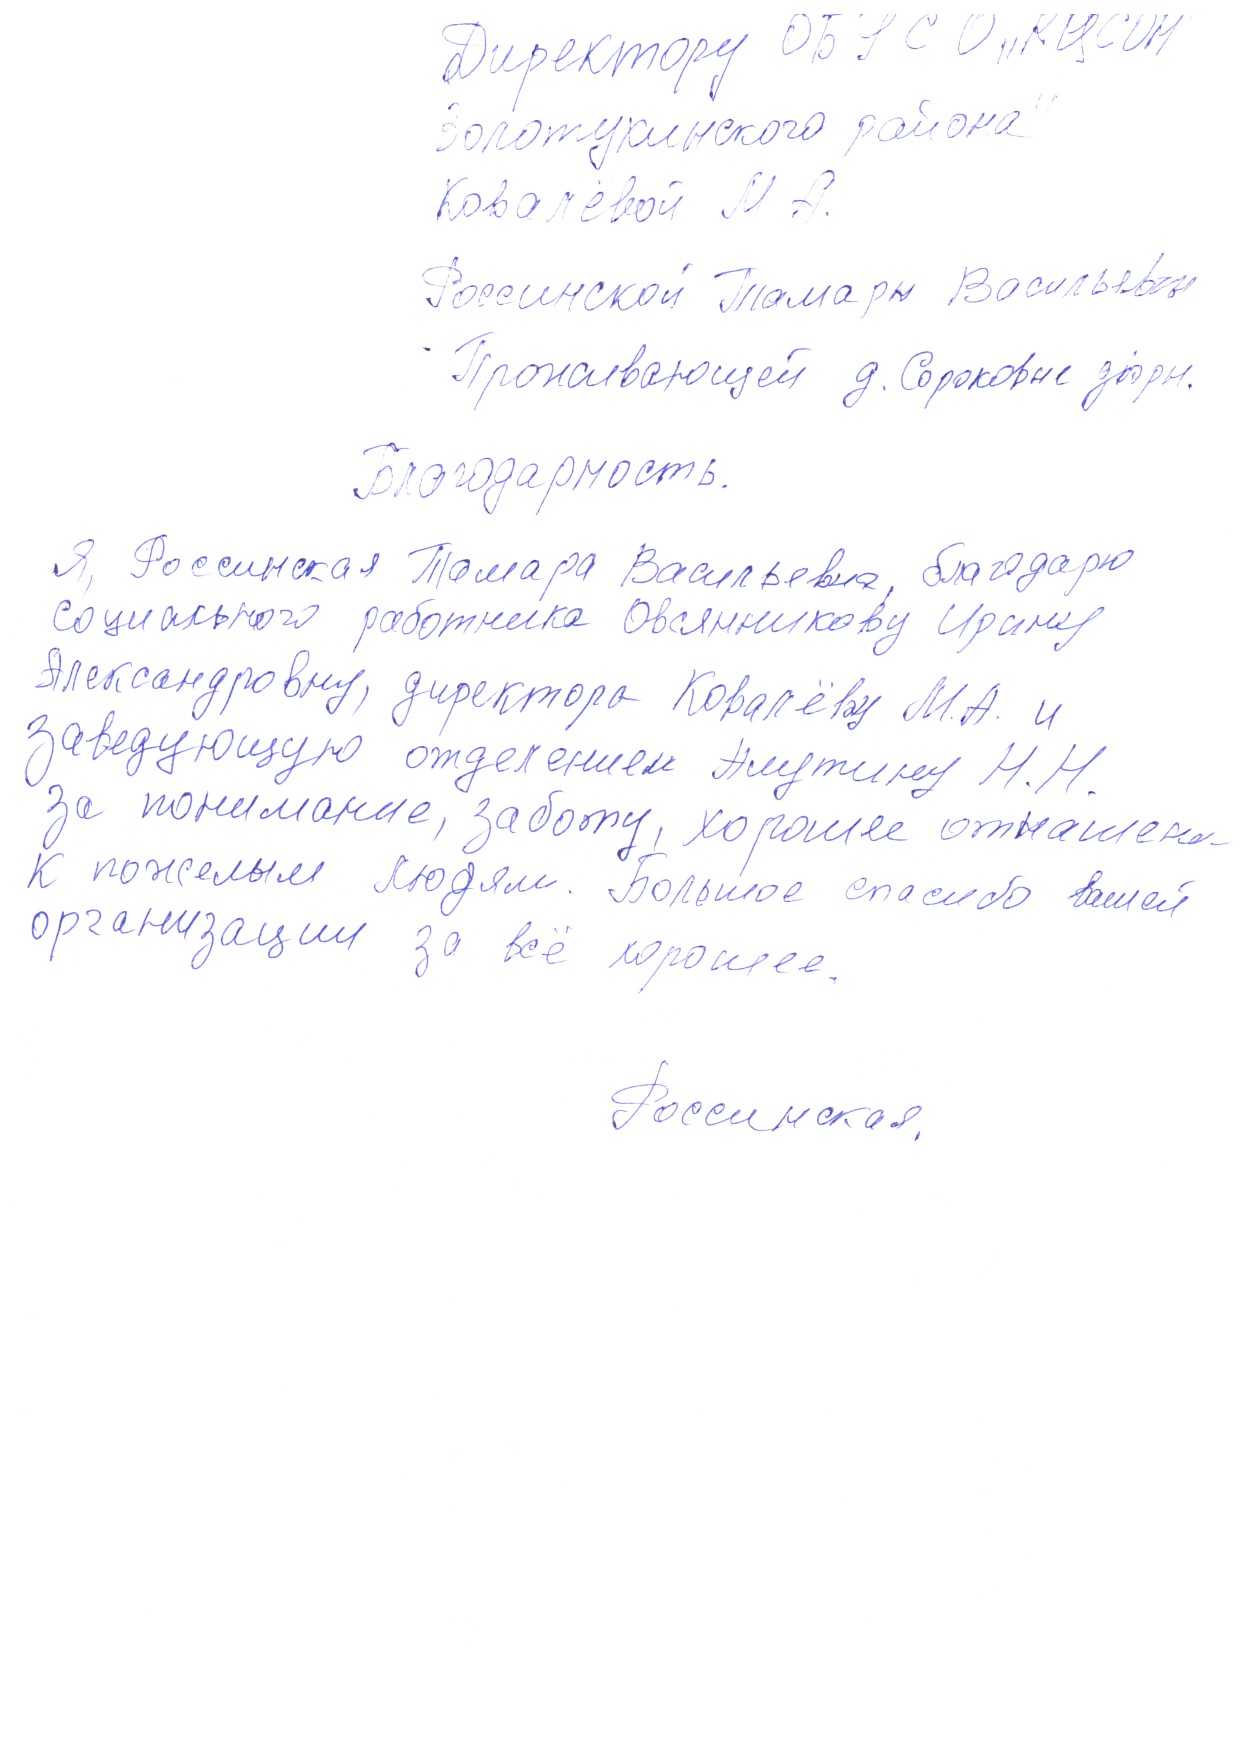 Директору ОБУСО „КЦСОН
Золотухинского района"
Ковалёвой М А.
Россинской Тамары Васильевны
Проживающей д. Сороковые
Благодарность.
Я, Россинская Тамара Васильевна, благодарю
социального работника Овсянникову Ирину
Александровну, директора Ковалёву М.А. и
заведующую отделением Н.Н.
За понимание, заботу, хорошее отнашени
к пожелым людям. Большое спасибо вашей
организации за всё хорошее.
Россинская.